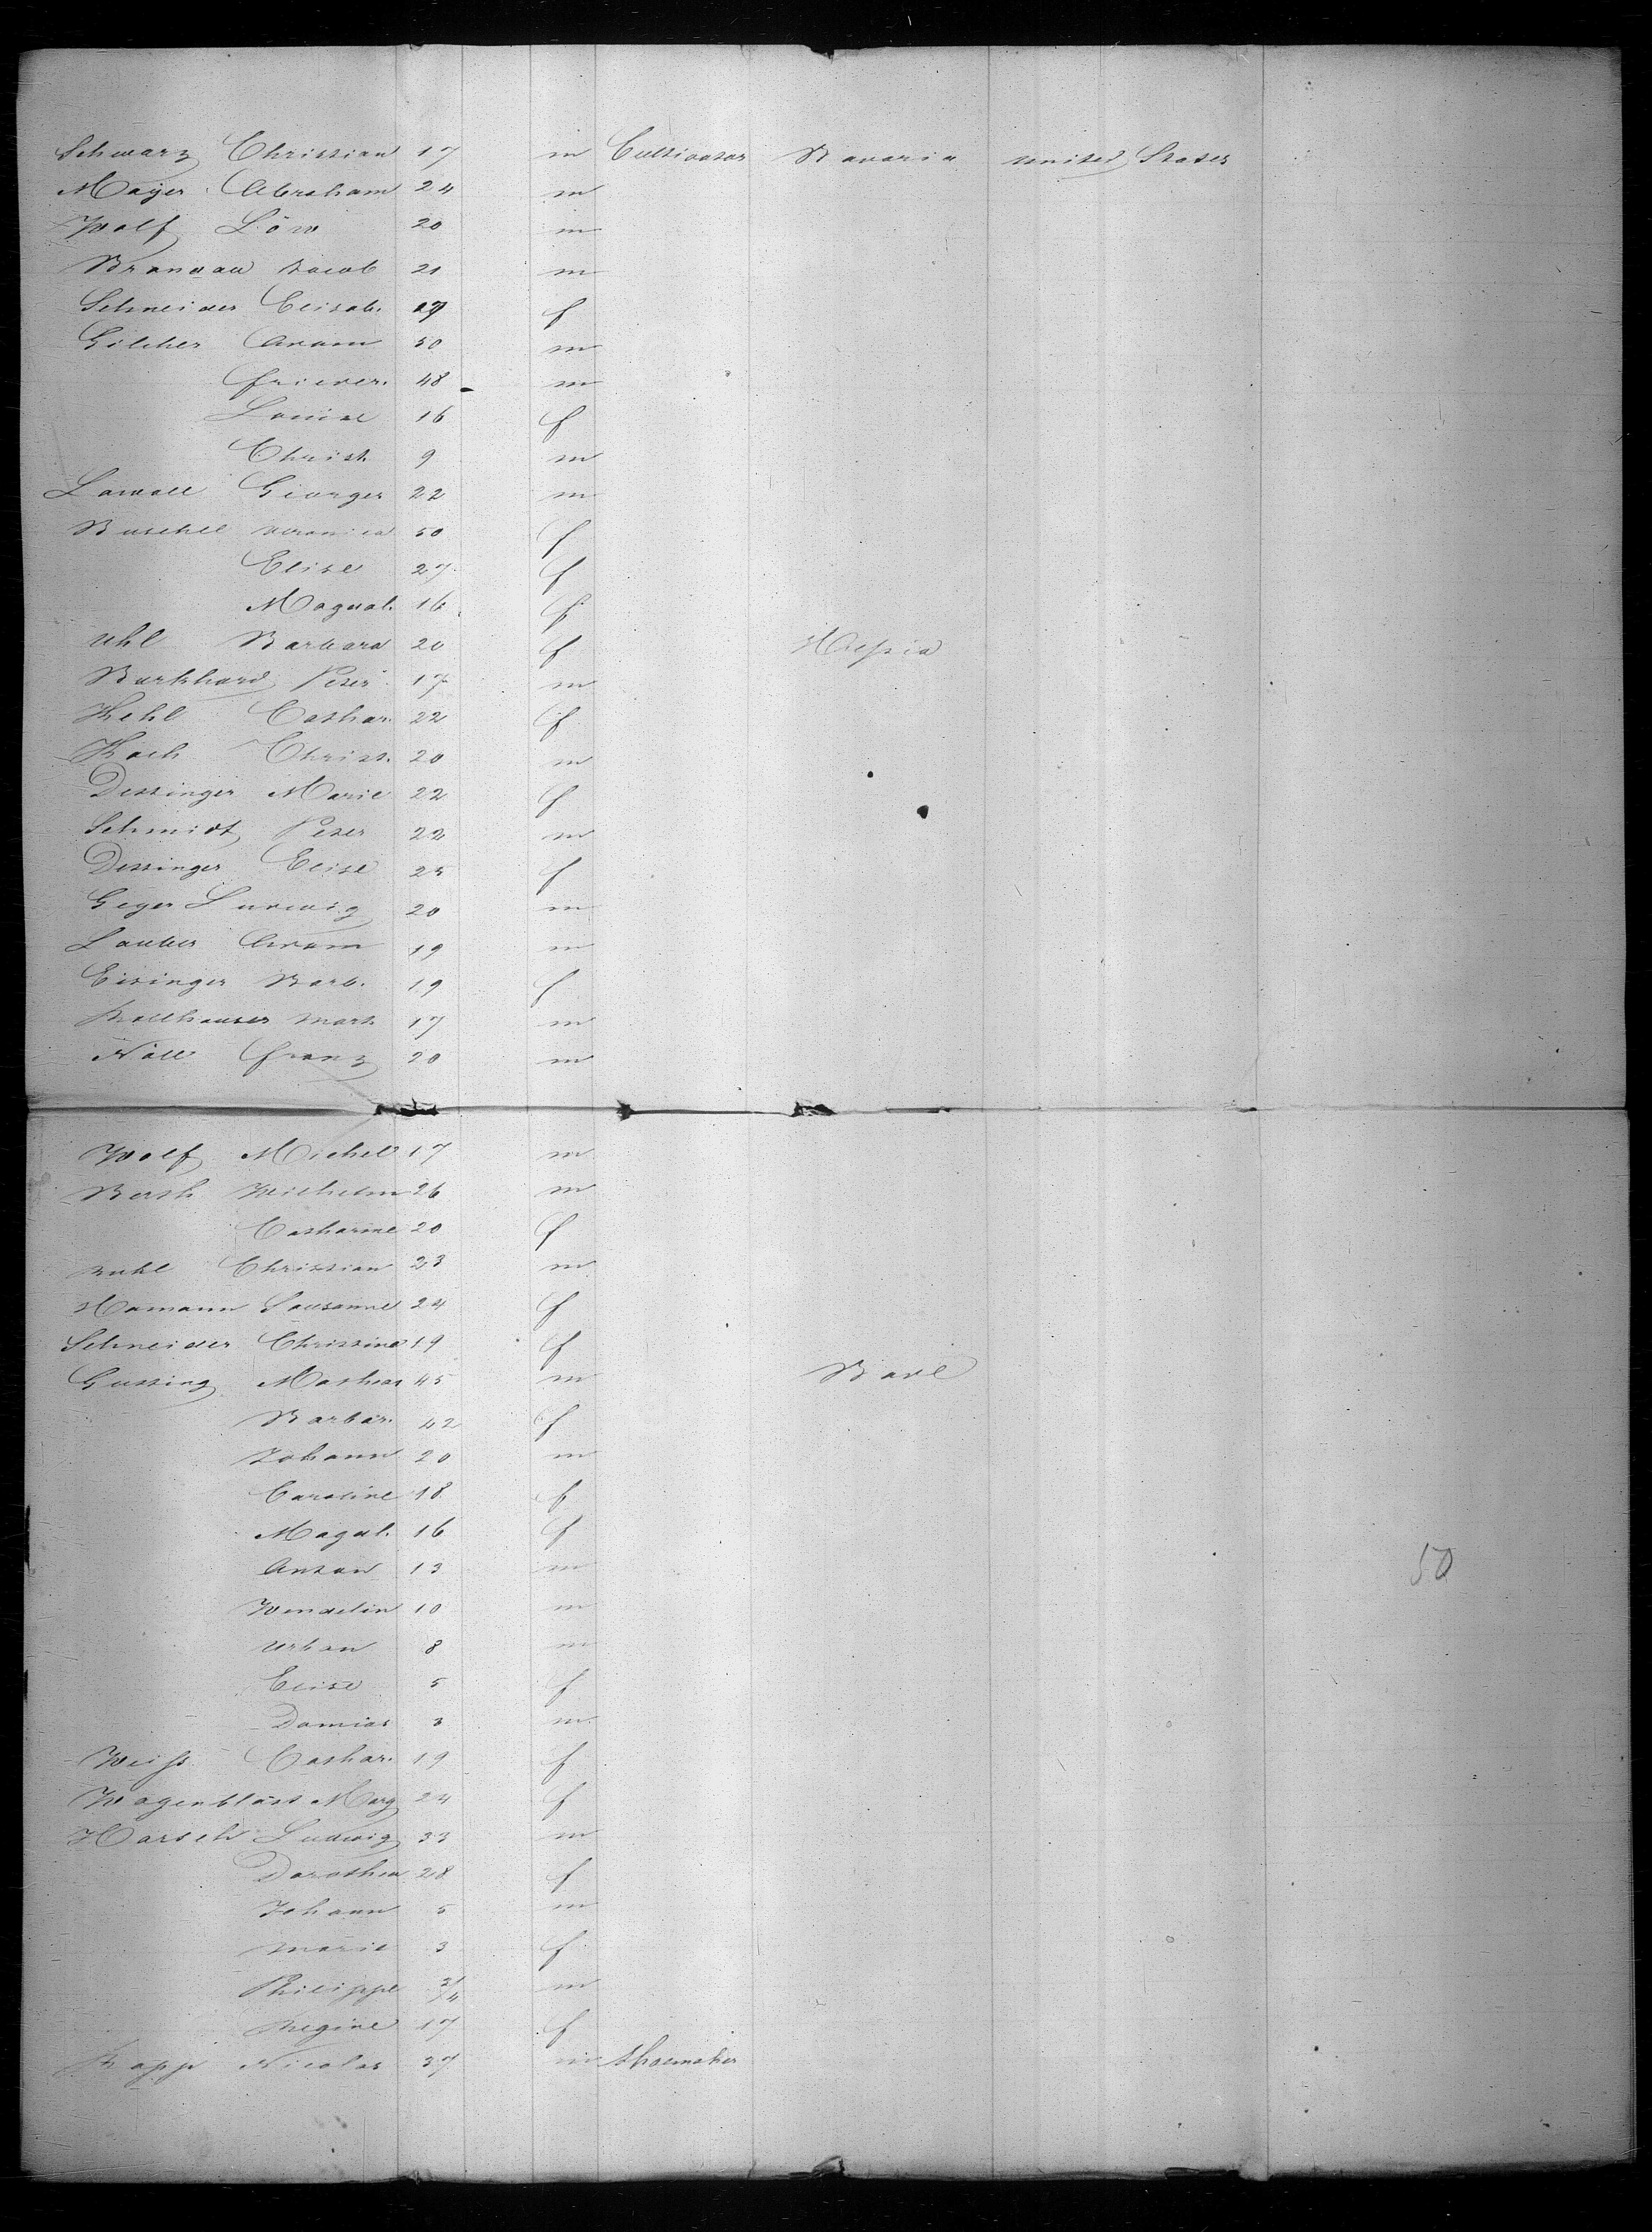 Schwarz Christian 17 m Cultivator Bavaria united States
Mayer Abraham 24 m
Wolf Löw 20 m
Brandau Jacob 21 m
Schneider Elisab. m 27 f
Gilcher Adam 50 m
Frieder. 48 m
Louise 16 f
Christ. 9 m
Lawall George 22 m
Buschel Veronica 50 f
Elise 27 f
Magdal. 16 f
Uhl Barbara 20 f Hessia
Burkhard Peter 17 m
Kehl Cathar. 22 f
Koch Christ. 20 m
Dessinger Marie 22 f
Schmidt Peter 22 m
Dessinger Elise 25 f
Geger Ludwig 20 m
Lauber Adam 19 m
Eisinger Barb. 19 f
Mart 17 m
Nöll Franz 20 m
Wolf Michel 17 m
Berth Wilhelm 26 m
Catharine 20 f
Ruhl Christian 23 m
Hamann Sausanne 24 f
Schneider Christina 19 f
Gutting Mathias 45 m Bade
Barbar. 42 f
Johann 20 m
Caroline 18 f
Magdl. 16 f
Anton 13 m
Wendelin 10 m
Urban 8 m
Elise 5 f
Damias 3 m
Weiß Cathar. 19 f
Wagenblast Marg 24 f
Harsch Ludwig 33 m
Dorothea 28 f
Johann 5 m
Marie 3 f
Philippe 3/4 m
Regine 17 f
Rapp Nicolas 37 m Shoemaker
50